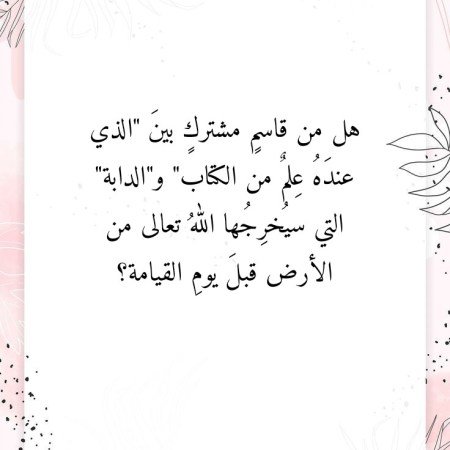 هل من قاسمٍ مشتركٍ بينَ "الذي
عندَهُ عِلمٌ من الكتاب" و"الدابة"
التي سيُخرِجُها اللهُ تعالى من
الأرض قبلَ يومِ القيامة؟